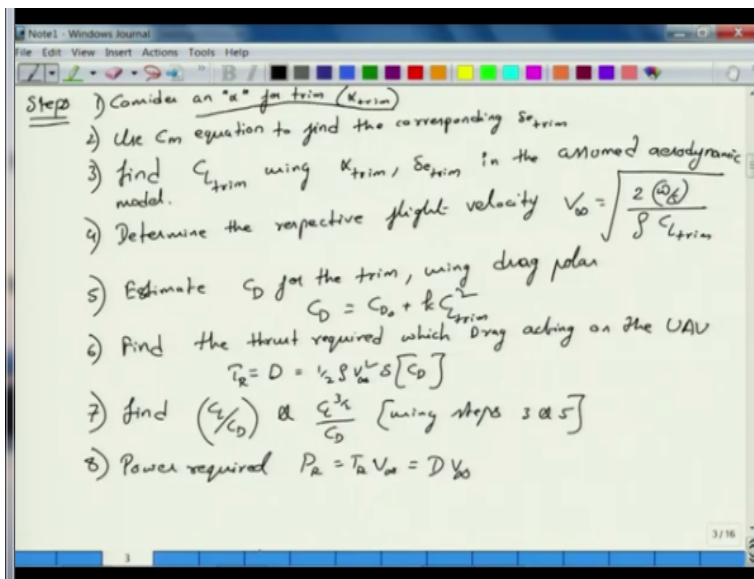 Note1 - Windows Journal
File Edit View Insert Actions Tools Help
Steps 1) Consider an "α" for trim (αtrim)
2) Use Cm equation to find the corresponding δe trim
3) find CL trim using αtrim, δe trim in the assumed aerodynamic
model.
4) Determine the respective flight velocity V∞ = √(2 (W/S) / ρ CL trim)
5) Estimate CD for the trim, using drag polar
CD = CD0 + k CL² trim
6) Find the thrust required which Drag acting on the UAV
TR = D = 1/2 ρ V∞² S [CD]
7) find (CL/CD) & CL^3/2 / CD [using steps 3 & 5]
8) Power required PR = TR V∞ = D V∞
3/16
3